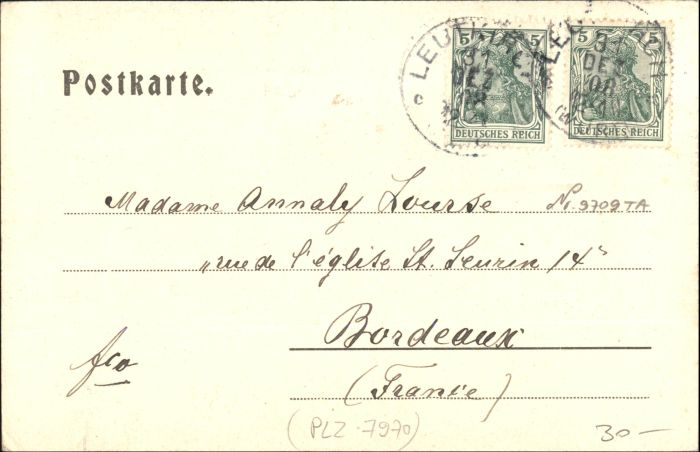 Postkarte.
5 5
DEUTSCHES REICH
5 5
DEUTSCHES REICH
31
DEZ
08
31
DEZ
08
Madame Annaly Lourse
Nr. 9709 TA
"rue de l'église St. Seurin 14"
Bordeaux
fco
(France)
(PLZ · 7970)
30-